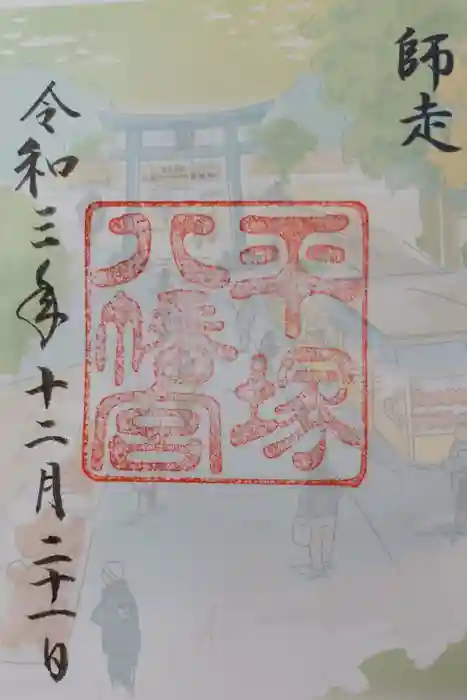 師走
平塚
八幡宮
令和三年十二月二十一日